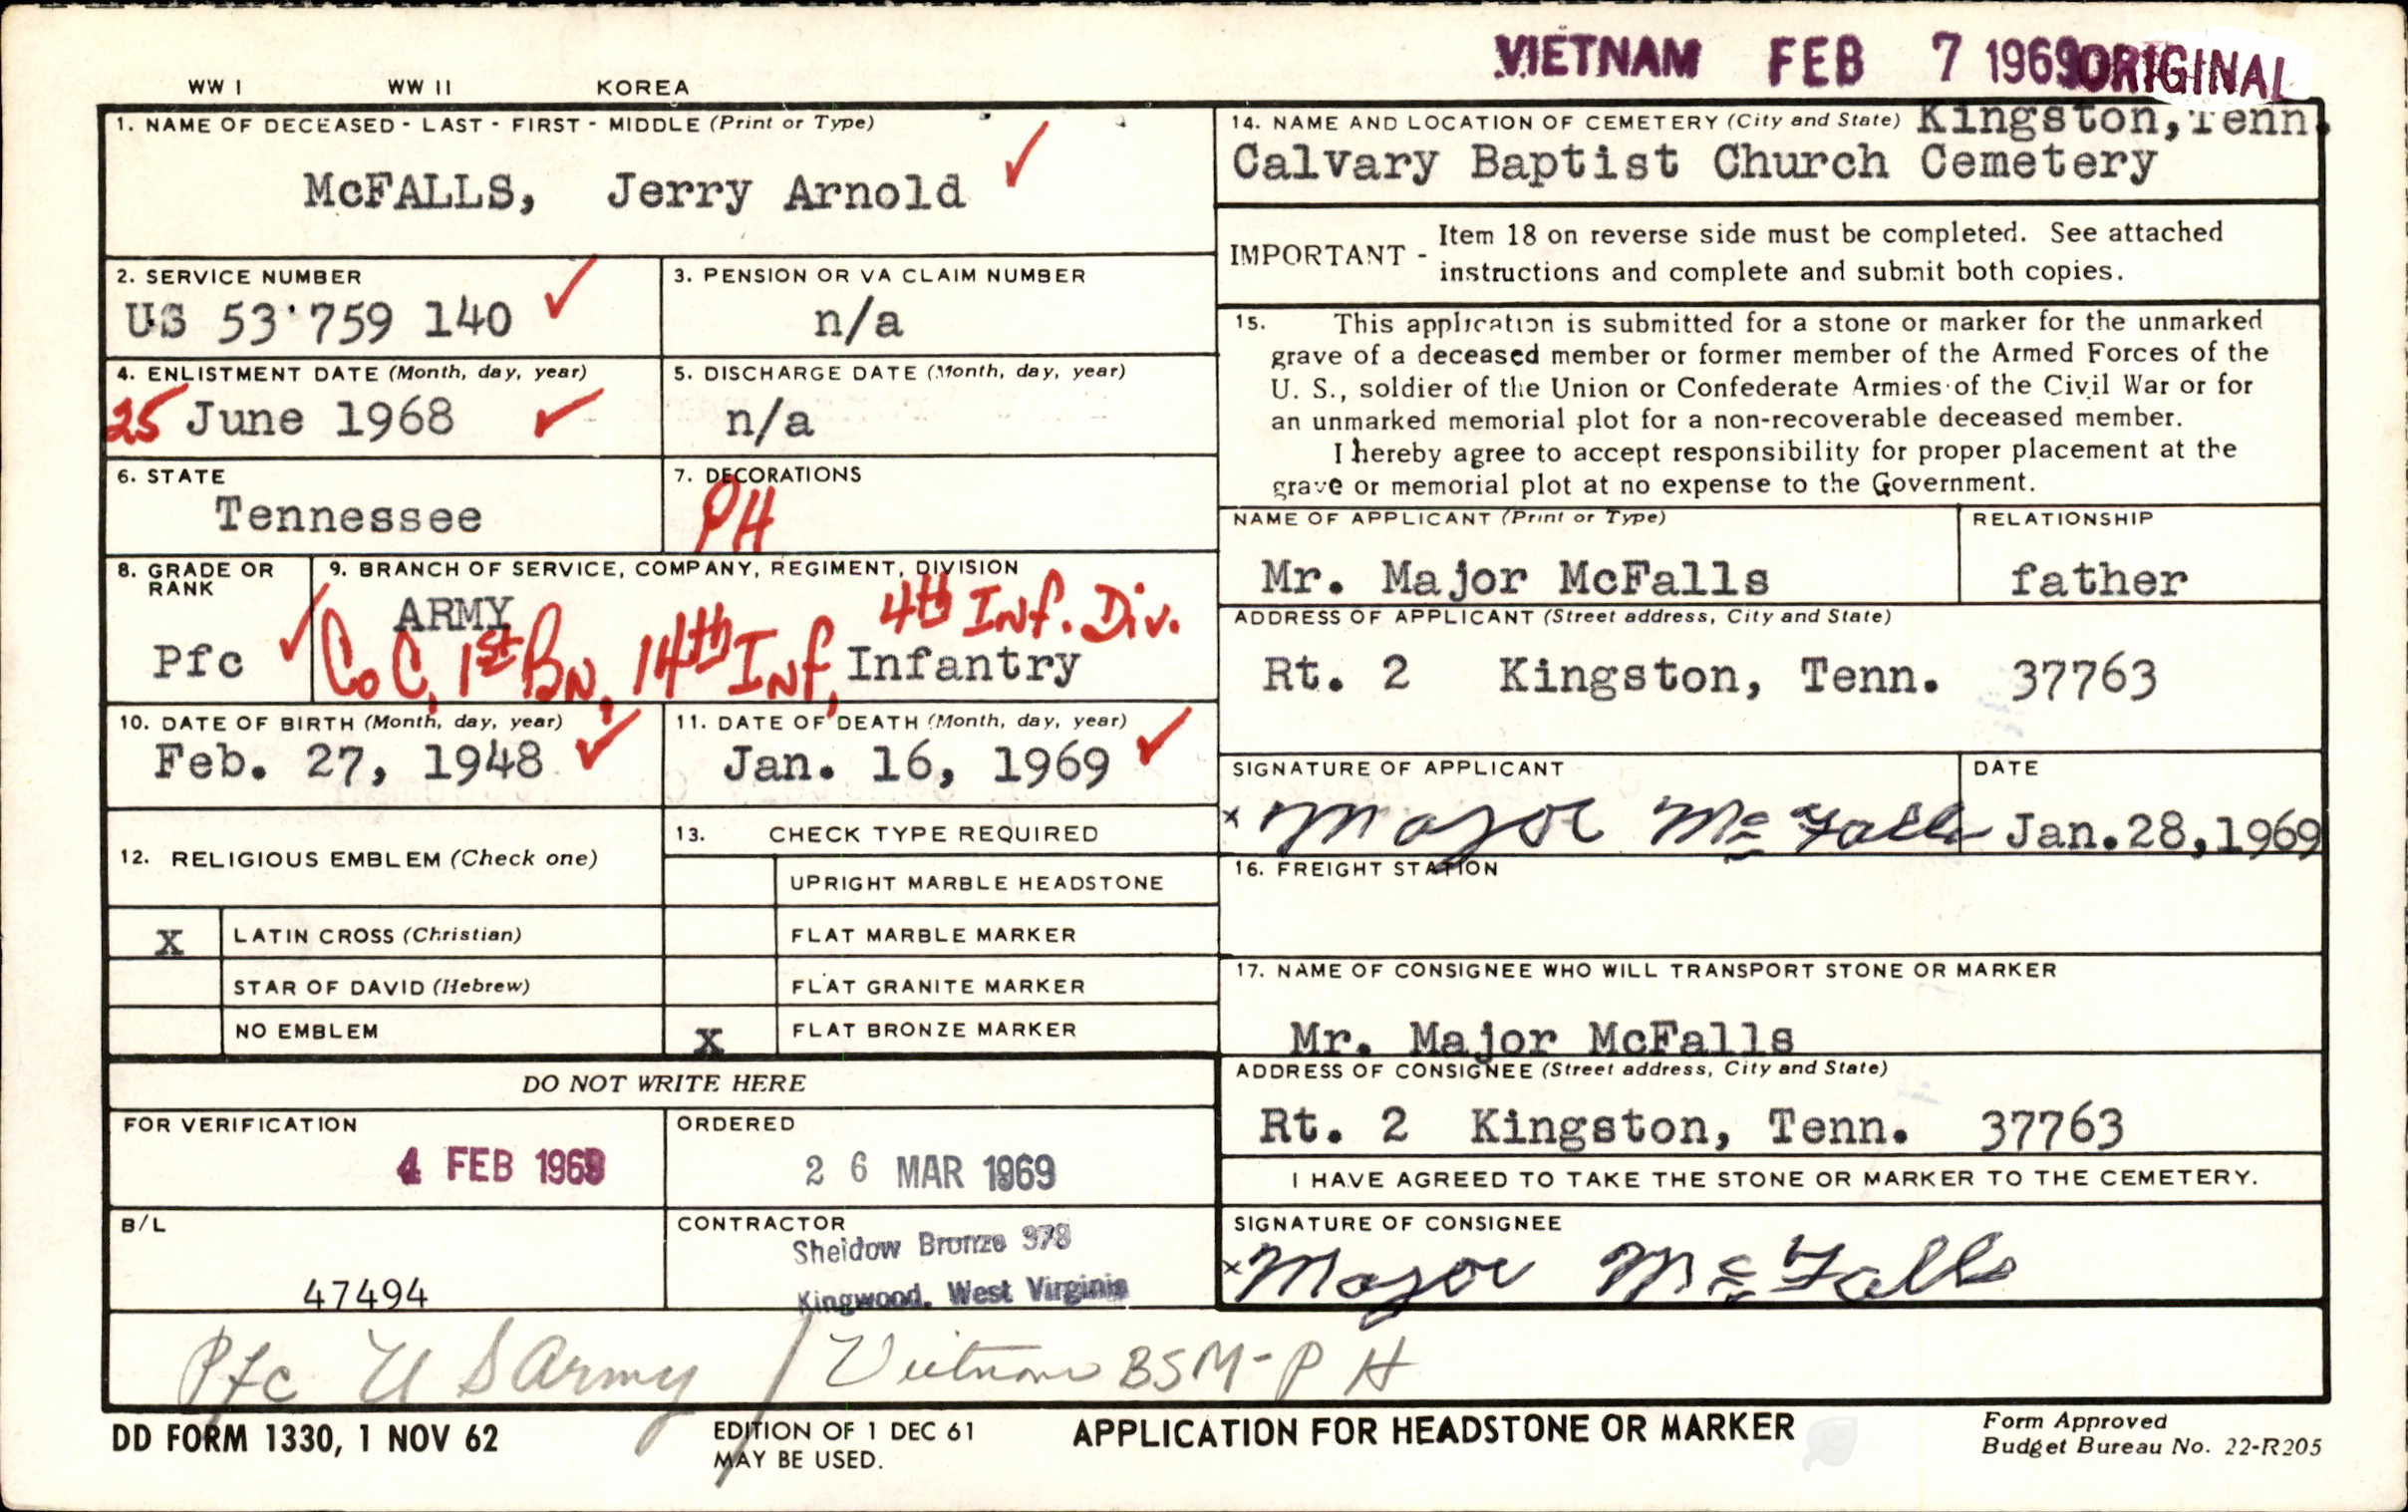 VIETNAM FEB 7 1969 ORIGINAL
WW I WW II KOREA
1. NAME OF DECEASED - LAST - FIRST - MIDDLE (Print or Type)
McFALLS, Jerry Arnold ✓
2. SERVICE NUMBER
US 53 759 140 ✓
3. PENSION OR VA CLAIM NUMBER
n/a
4. ENLISTMENT DATE (Month, day, year)
25 June 1968 ✓
5. DISCHARGE DATE (Month, day, year)
n/a
6. STATE
Tennessee
7. DECORATIONS
PH
8. GRADE OR
RANK
Pfc ✓
9. BRANCH OF SERVICE, COMPANY, REGIMENT, DIVISION
ARMY 4th Inf. Div.
Co C, 1st Bn, 14th Inf, Infantry
10. DATE OF BIRTH (Month, day, year)
Feb. 27, 1948 ✓
11. DATE OF DEATH (Month, day, year)
Jan. 16, 1969 ✓
12. RELIGIOUS EMBLEM (Check one)
X LATIN CROSS (Christian)
STAR OF DAVID (Hebrew)
NO EMBLEM
13. CHECK TYPE REQUIRED
UPRIGHT MARBLE HEADSTONE
FLAT MARBLE MARKER
FLAT GRANITE MARKER
X FLAT BRONZE MARKER
DO NOT WRITE HERE
FOR VERIFICATION
4 FEB 1969
ORDERED
2 6 MAR 1969
B/L
47494
CONTRACTOR
Sheidow Bronze 378
Kingwood, West Virginia
14. NAME AND LOCATION OF CEMETERY (City and State) Kingston, Tenn.
Calvary Baptist Church Cemetery
IMPORTANT - Item 18 on reverse side must be completed. See attached
instructions and complete and submit both copies.
15. This application is submitted for a stone or marker for the unmarked
grave of a deceased member or former member of the Armed Forces of the
U. S., soldier of the Union or Confederate Armies of the Civil War or for
an unmarked memorial plot for a non-recoverable deceased member.
I hereby agree to accept responsibility for proper placement at the
grave or memorial plot at no expense to the Government.
NAME OF APPLICANT (Print or Type)
Mr. Major McFalls
RELATIONSHIP
father
ADDRESS OF APPLICANT (Street address, City and State)
Rt. 2 Kingston, Tenn. 37763
SIGNATURE OF APPLICANT
x Major McFalls
DATE
Jan.28,1969
16. FREIGHT STATION
17. NAME OF CONSIGNEE WHO WILL TRANSPORT STONE OR MARKER
Mr. Major McFalls
ADDRESS OF CONSIGNEE (Street address, City and State)
Rt. 2 Kingston, Tenn. 37763
I HAVE AGREED TO TAKE THE STONE OR MARKER TO THE CEMETERY.
SIGNATURE OF CONSIGNEE
x Major McFalls
Pfc U S Army / Vietnam BSM - P H
DD FORM 1330, 1 NOV 62
EDITION OF 1 DEC 61
MAY BE USED.
APPLICATION FOR HEADSTONE OR MARKER
Form Approved
Budget Bureau No. 22-R205